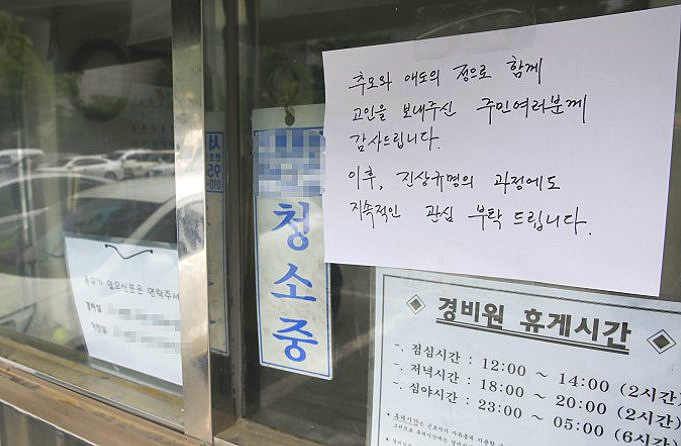 추모와 애도의 정으로 함께
고인을 보내주신 주민여러분께
감사드립니다.
이후, 진상규명의 과정에도
지속적인 관심 부탁 드립니다.
청소중
경비원 휴게시간
-. 점심시간 : 12:00 ~ 14:00 (2시간)
-. 저녁시간 : 18:00 ~ 20:00 (2시간)
-. 심야시간 : 23:00 ~ 05:00 (6시간)
용무가 있으신분은 연락주서
경비실